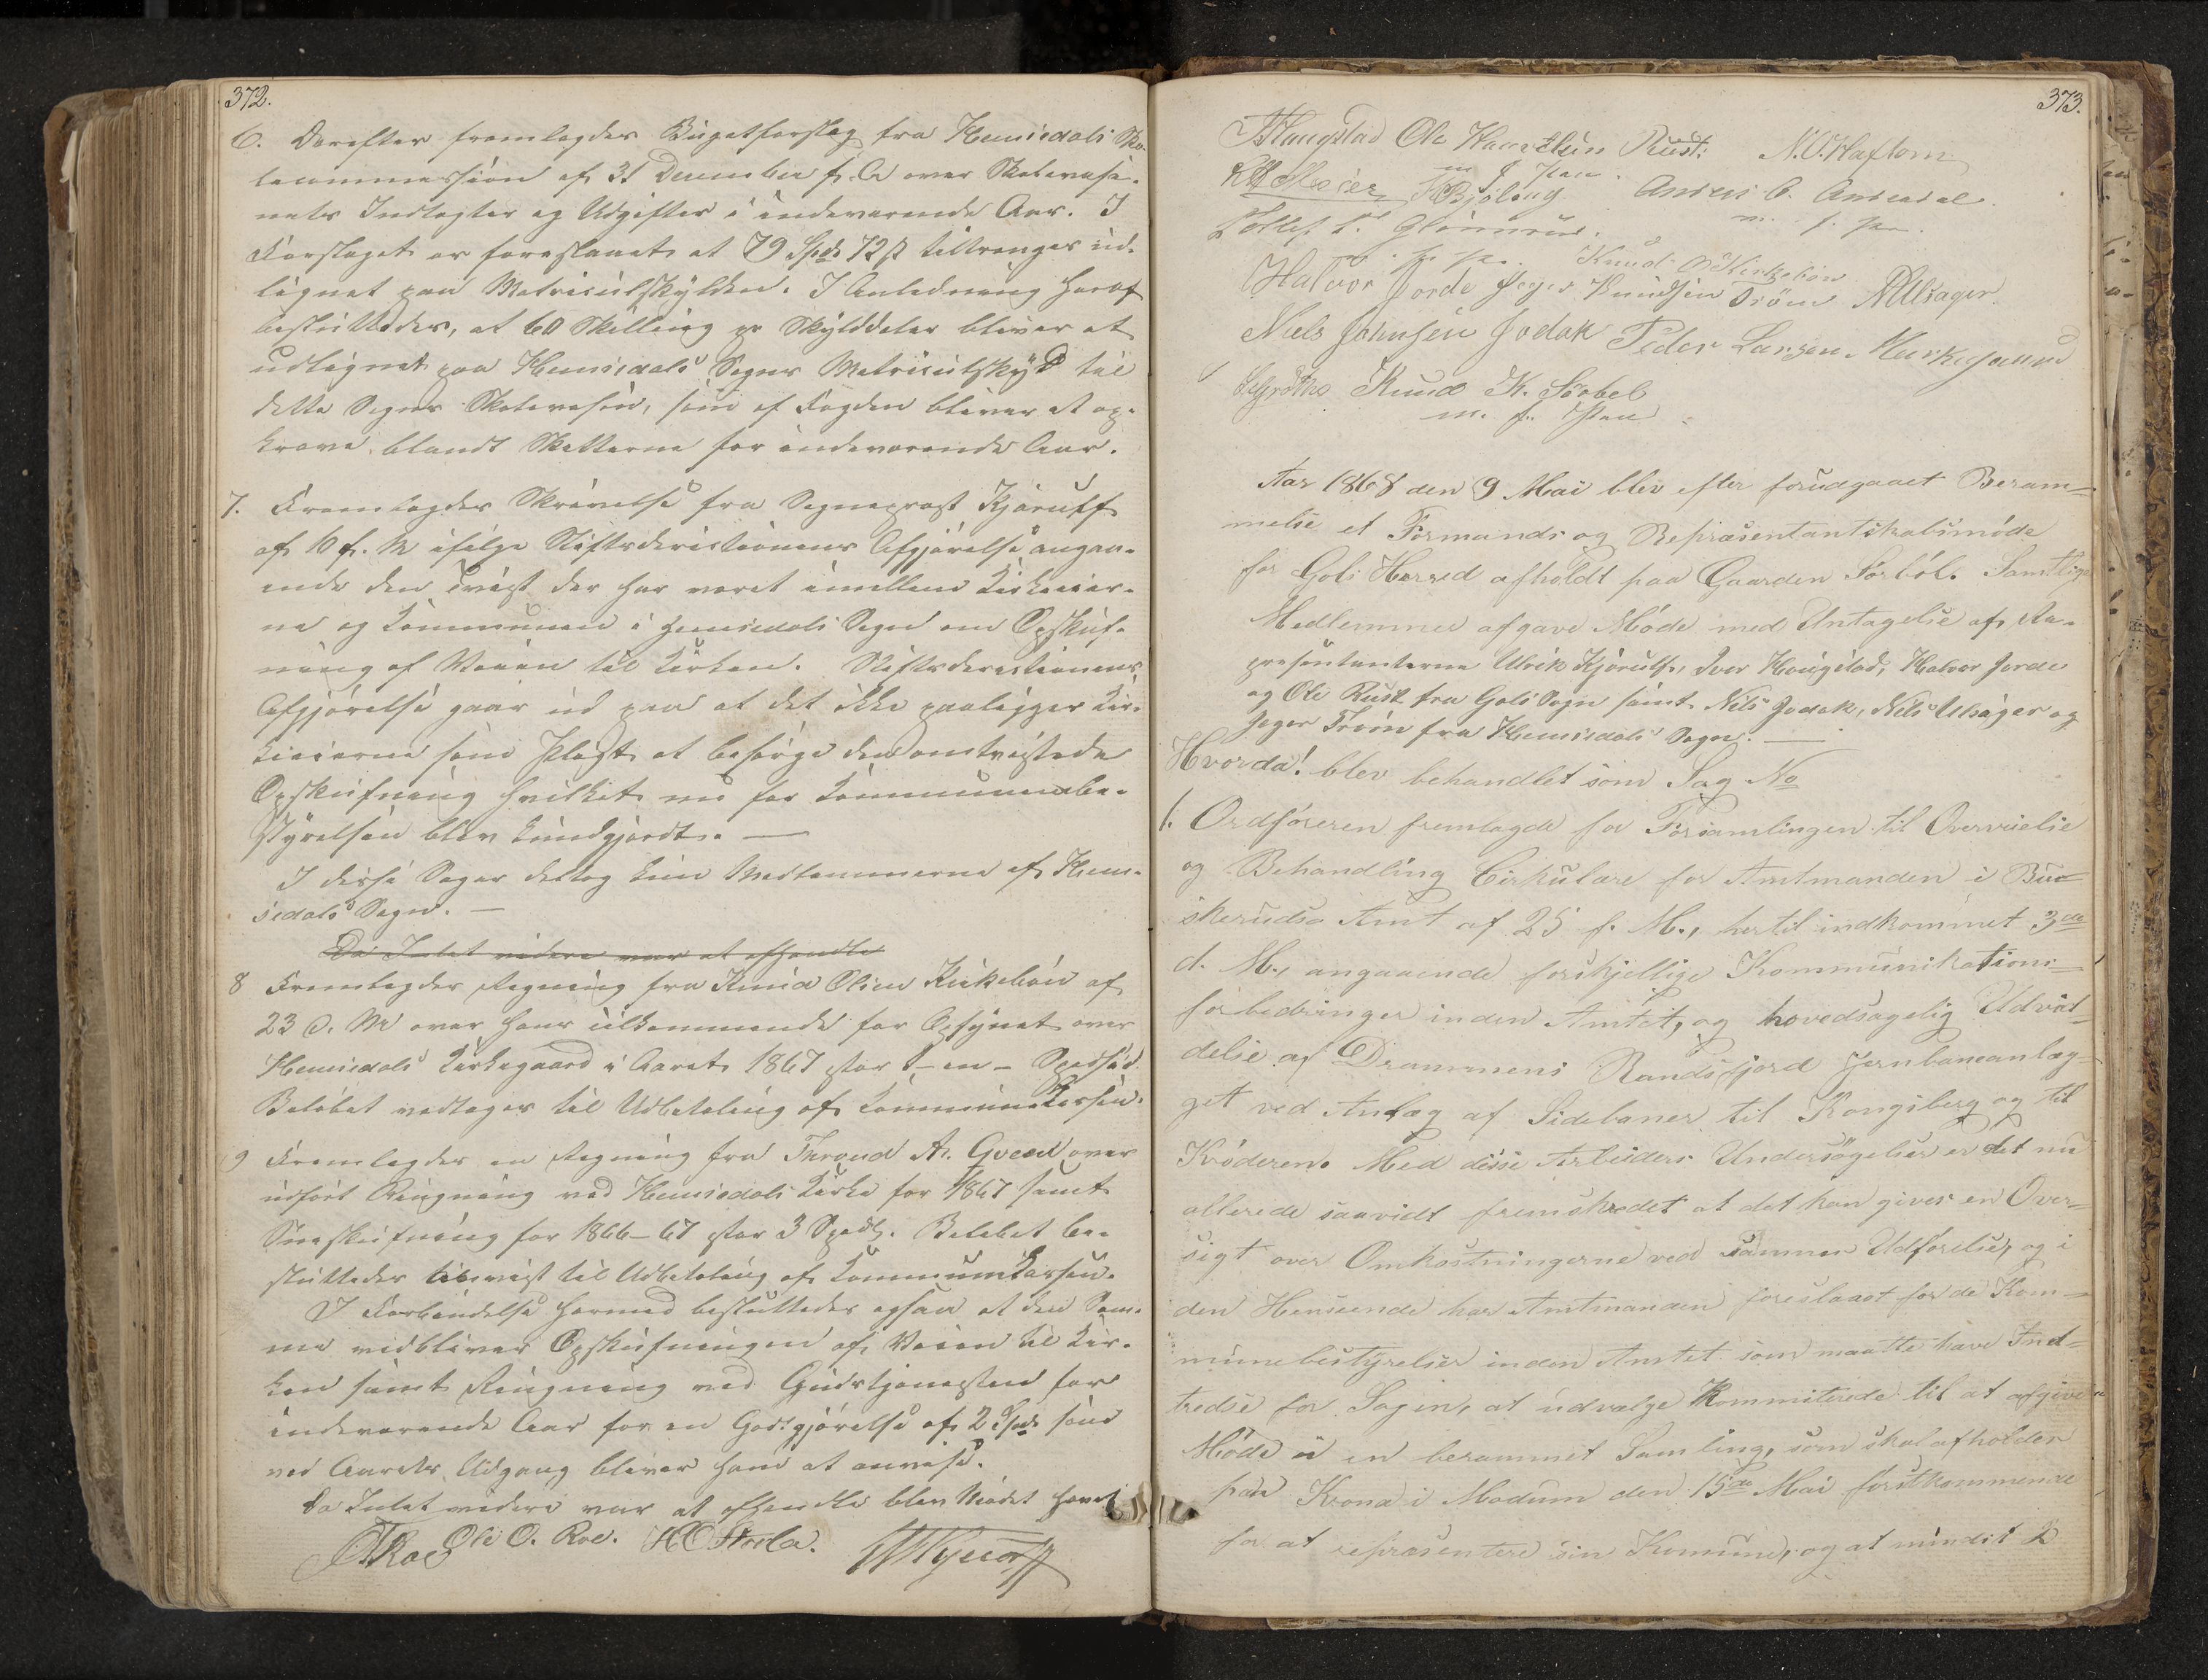 372.
6. Derefter fremlagdes Budgetforslag fra Hemsedals Sko-
lecommission af 31 December f. A. over Skolevæse-
nets Indtægter og Udgifter i indeværende Aar. I
Forslaget er foreslaaet at 79 Spd. 72 s tiltrænges ud-
lignet paa Matriculskylden. I Anledning heraf
besluttedes, at 60 Skilling pr Skylddaler bliver at
udlignet paa Hemsedals Sogns Matriculskyld til
dette Sogns Skolevæsen, som af Fogden bliver at op-
kræve blandt Skatterne for indeværende Aar.
7. Fremlagdes Skrivelse fra Sogneprest Kjærulf
af 10 f. M ifølge Stiftsdirectionens Afgjørelse angaa-
ende den Tvist der har været imellem Kirkeeier-
ne og Kommunen i Hemsedals Sogn om Opskuf-
ning af Veien til Kirken. Stiftsdirectionens
Afgjørelse gaar ud paa at det ikke paaligger Kir-
keeierne som Pligt at besørge den omtvistede
Opskufning hvilket nu for Kommunebe-
styrelsen blev kundgjordt. —
I disse Sager deltog kun Medlemmerne af Hem-
sedals Sogn. —
Da Intet videre var at afhandle
8 Fremlagdes Regning fra Knud Olsen Kirkebøen af
23 d. M over hans tilkommende for Opsynet over
Hemsedals Kirkegaard i Aaret 1867 stor 1 - en - Speciesd.
Beløbet vedtages til Udbetaling af Kommunekassen.
9 Fremlagdes en Regning fra Throud A. over
udført Ringning ved Hemsedals Kirke for 1867 samt
Sneskufning for 1866-67 stor 3 Spd. Beløbet be-
sluttedes anvist til Udbetaling af Kommunekassen.
I Forbindelse hermed besluttedes ogsaa at den Sam-
me vedbliver Opskufningen af Veien til Kir-
ken samt Ringning ved Gudstjenesten for
indeværende Aar for en Godtgjørelse af 2 Spd. som
ved Aarets Udgang bliver ham at anvise.
Da Intet videre var at afhandle blev Mødet hævet
Ole O. Roe. H O Storla.
373.
Haugstad Ole Rust: N. O. Haftorn
m f Pen
Halvor Jorde Jeger Knudsen Trøim Knud O Kirkebøen N Ulsager.
Niels Johnsen Jodak Peder Larsen
Knud K. Sørbel
m. f. Pen
Aar 1868 den 9 Mai blev efter forudgaaet Beram-
melse et Formands og Repræsentantskabsmøde
for Gols Herred afholdt paa Gaarden Sørbøl. Samtlige
Medlemmer afgave Møde med Untagelse af Re-
præsentanterne Ulrik Kjærulf, Iver Haugstad, Halvor Jorde
og Ole Rust fra Gols Sogn samt Nils Jodak, Nils Ulsager og
Jeger Trøim fra Hemsedals Sogn. —
Hvorda! blev behandlet som Sag No
1. Ordføreren fremlagde for Forsamlingen til Overveielse
og Behandling Cirkulære for Amtmanden i Bu-
skeruds Amt af 25 f. M., hertil indkommet 3de
d. M., angaaende forskjellige Kommunikations-
forbedringer inden Amtet, og hovedsagelig Udvid-
delse af Drammens Randsfjord Jernbaneanlæg-
get ved Anlæg af Sidebaner til Kongsberg og til
Krøderen. Med disse Arbeiders Undersøgelser er det nu
allerede saavidt fremskredet at det kan gives en Over-
sigt over Omkostningerne ved sammes Udførelse, og i
den Henseende har Amtmanden foreslaaet for de Kom-
munebestyrelser inden Amtet som maatte have Ind-
tredse for Sagen, at udvælge Kommiterede til at afgive
Møde i en berammet Samling, som skal afholdes
paa Krona i Modum den 15de Mai førstkommende
for at repræsentere sin Komune, og at mindst 2